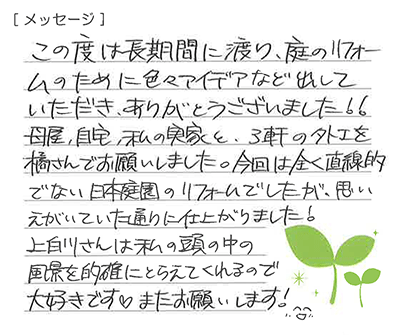 [メッセージ]
この度は長期間に渡り、庭のリフォー
ムのために色々アイデアなど出して
いただき、ありがとうございました!!
母屋,自宅,私の実家と、3軒の外工を
橘さんでお願いしました。今回は全く直線的
でない日本庭園のリフォームでしたが、思い
えがいていた通りに仕上がりました!
上白川さんは私の頭の中の
風景を的確にとらえてくれるので
大好きです♡またお願いします!